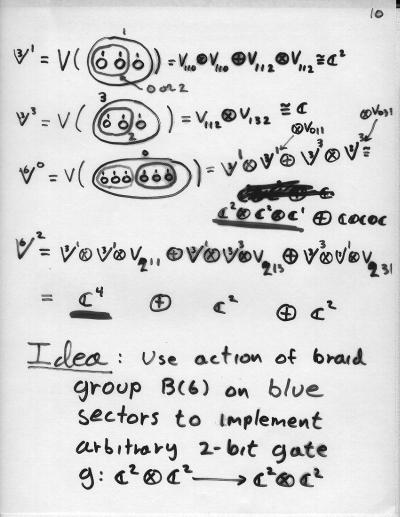 10
V³ ¹ = V( 1 1 1 1 ) = V₁₁₀ ⊗ V₁₁₀ ⊕ V₁₁₂ ⊗ V₁₁₂ ≅ ℂ²
0 or 2
V³ ³ = V( 3 1 1 1 2 ) = V₁₁₂ ⊗ V₁₃₂ ≅ ℂ
⊗V₀₁₁ ⊗V₀₃₁
V⁶ ⁰ = V( 0 1 1 1 1 1 1 ) = V³ ¹ ⊗ V³ ¹ ⊕ V³ ³ ⊗ V³ ³ ≅
ℂ² ⊗ ℂ² ⊗ ℂ¹ ⊕ ℂ⊗ℂ⊗ℂ
V⁶ ² = V³ ¹ ⊗ V³ ¹ ⊗ V₂₁₁ ⊕ V³ ¹ ⊗ V³ ³ ⊗ V₂₁₃ ⊕ V³ ³ ⊗ V³ ¹ ⊗ V₂₃₁
= ℂ⁴ ⊕ ℂ² ⊕ ℂ²
Idea: Use action of braid
group B(6) on blue
sectors to implement
arbitrary 2-bit gate
g: ℂ² ⊗ ℂ² → ℂ² ⊗ ℂ²